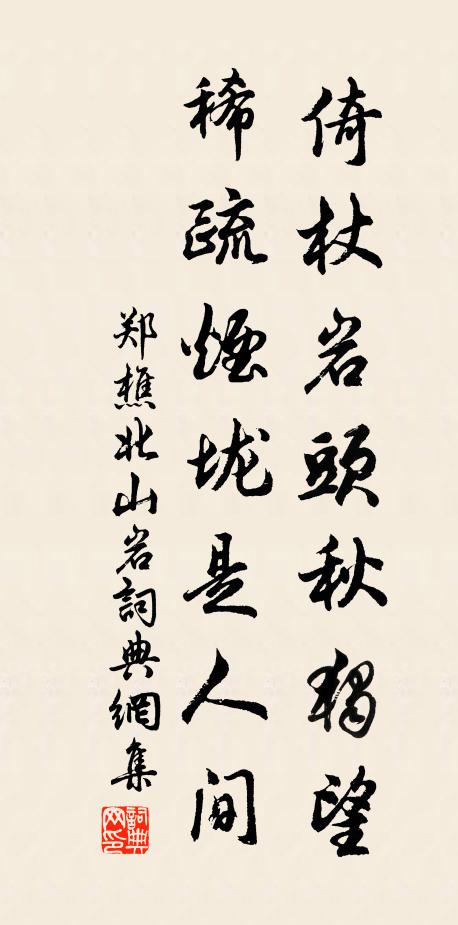 倚杖岩頭秋獨望
稀疏煙垅是人间
郑樵北山岩詞典網集
詞典
网印